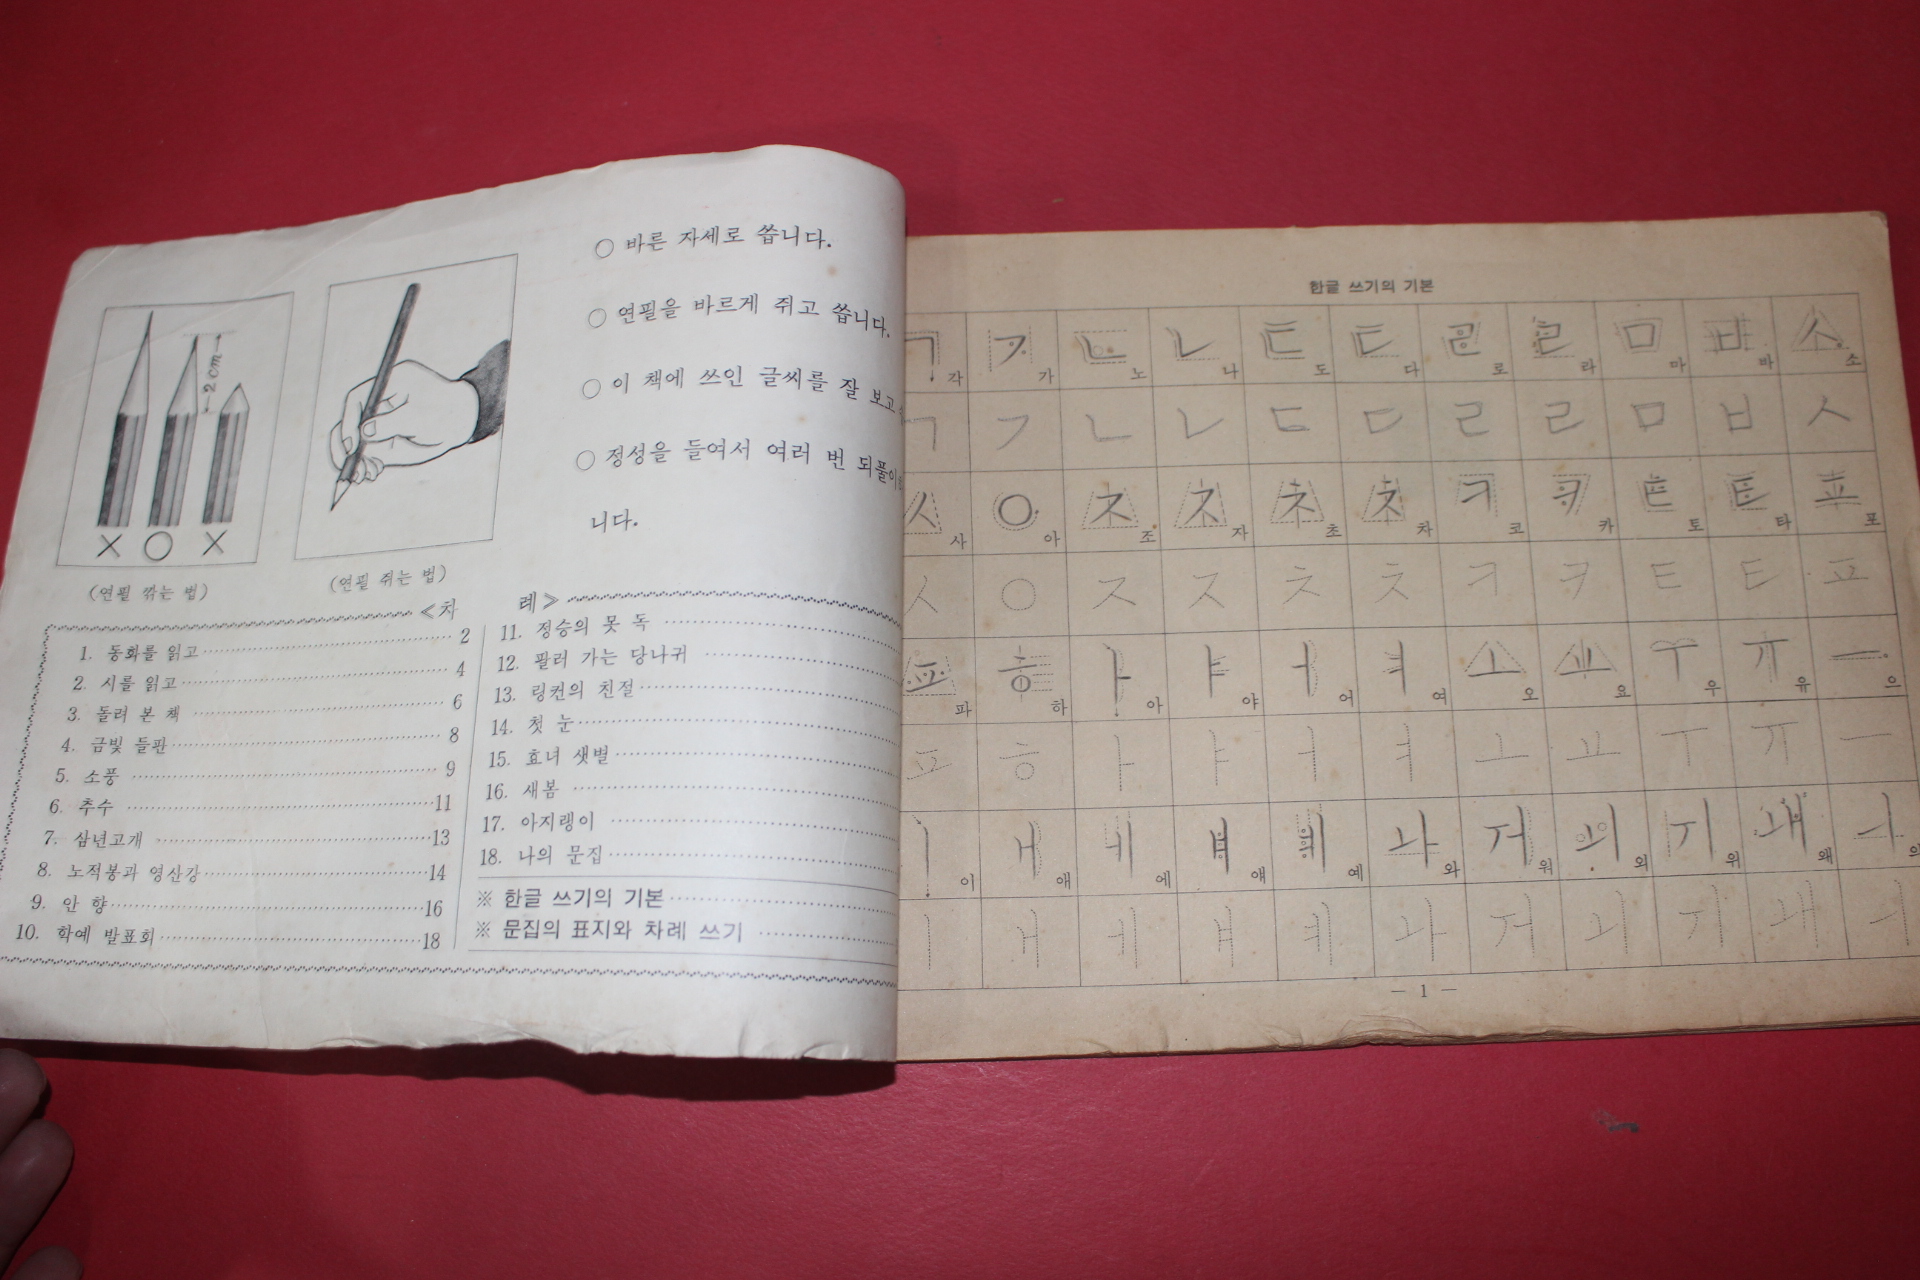 ○ 바른 자세로 씁니다.
○ 연필을 바르게 쥐고 씁니다.
○ 이 책에 쓰인 글씨를 잘 보고
○ 정성을 들여서 여러 번 되풀이
니다.
2cm
× ○ ×
(연필 깎는 법)
(연필 쥐는 법)
≪차 례≫
1. 동화를 읽고 2
2. 시를 읽고 4
3. 돌려 본 책 6
4. 금빛 들판 8
5. 소풍 9
6. 추수 11
7. 삼년고개 13
8. 노적봉과 영산강 14
9. 안 향 16
10. 학예 발표회 18
11. 정승의 못 독
12. 팔러 가는 당나귀
13. 링컨의 친절
14. 첫 눈
15. 효녀 샛별
16. 새봄
17. 아지랭이
18. 나의 문집
※ 한글 쓰기의 기본
※ 문집의 표지와 차례 쓰기
한글 쓰기의 기본
ㄱ 각 ㄱ 가 ㄴ 노 ㄴ 나 ㄷ 도 ㄷ 다 ㄹ 로 ㄹ 라 ㅁ 마 ㅂ 바 ㅅ 소
ㄱ ㄱ ㄴ ㄴ ㄷ ㄷ ㄹ ㄹ ㅁ ㅂ ㅅ
ㅅ 사 ㅇ 아 ㅈ 조 ㅈ 자 ㅊ 초 ㅊ 차 ㅋ 코 ㅋ 카 ㅌ 토 ㅌ 타 ㅍ 포
ㅅ ㅇ ㅈ ㅈ ㅊ ㅊ ㅋ ㅋ ㅌ ㅌ ㅍ
ㅍ 파 ㅎ 하 ㅏ 아 ㅑ 야 ㅓ 어 ㅕ 여 ㅗ 오 ㅛ 요 ㅜ 우 ㅠ 유 ㅡ 으
ㅍ ㅎ ㅏ ㅑ ㅓ ㅕ ㅗ ㅛ ㅜ ㅠ ㅡ
ㅣ 이 ㅐ 애 ㅔ 에 ㅒ 얘 ㅖ 예 ㅘ 와 ㅝ 워 ㅚ 외 ㅟ 위 ㅙ 왜 ㅢ 의
ㅣ ㅐ ㅔ ㅒ ㅖ ㅘ ㅝ ㅚ ㅟ ㅙ ㅢ
— 1 —